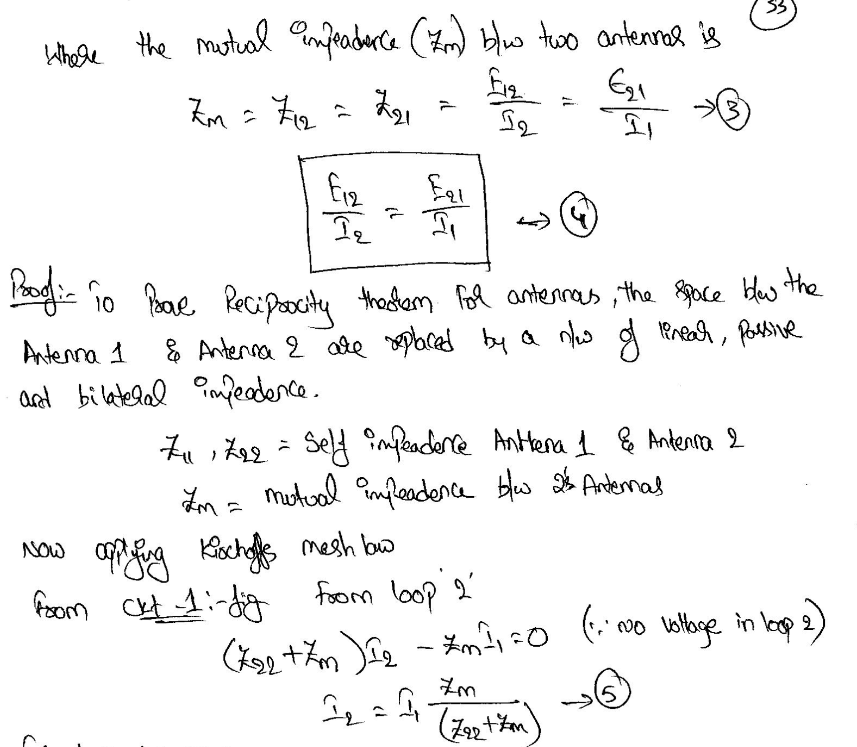 33
Where the mutual impeadence (Zm) b/w two antennas is
Zm = Z12 = Z21 = E12/I2 = E21/I1 → ③
E12/I2 = E21/I1 ↔ ④
Proof:- To Prove Reciprocity theorem for antennas, the space b/w the
Antenna 1 & Antenna 2 are replaced by a n/w of linear, passive
and bilateral impeadence.
Z11, Z22 = Self impeadence Anttena 1 & Antenna 2
Zm = mutual impeadence b/w Antennas
Now applying Kirchoffs mesh law
from ckt-1:- fig from loop '2'
(Z22 + Zm) I2 - Zm I1 = 0 (∵ no voltage in loop 2)
I2 = I1 Zm/(Z22 + Zm) → ⑤